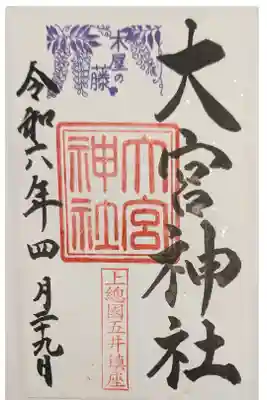 大宮神社
木屋の藤
大宮神社
上總國五井鎮座
令和六年四月二十九日